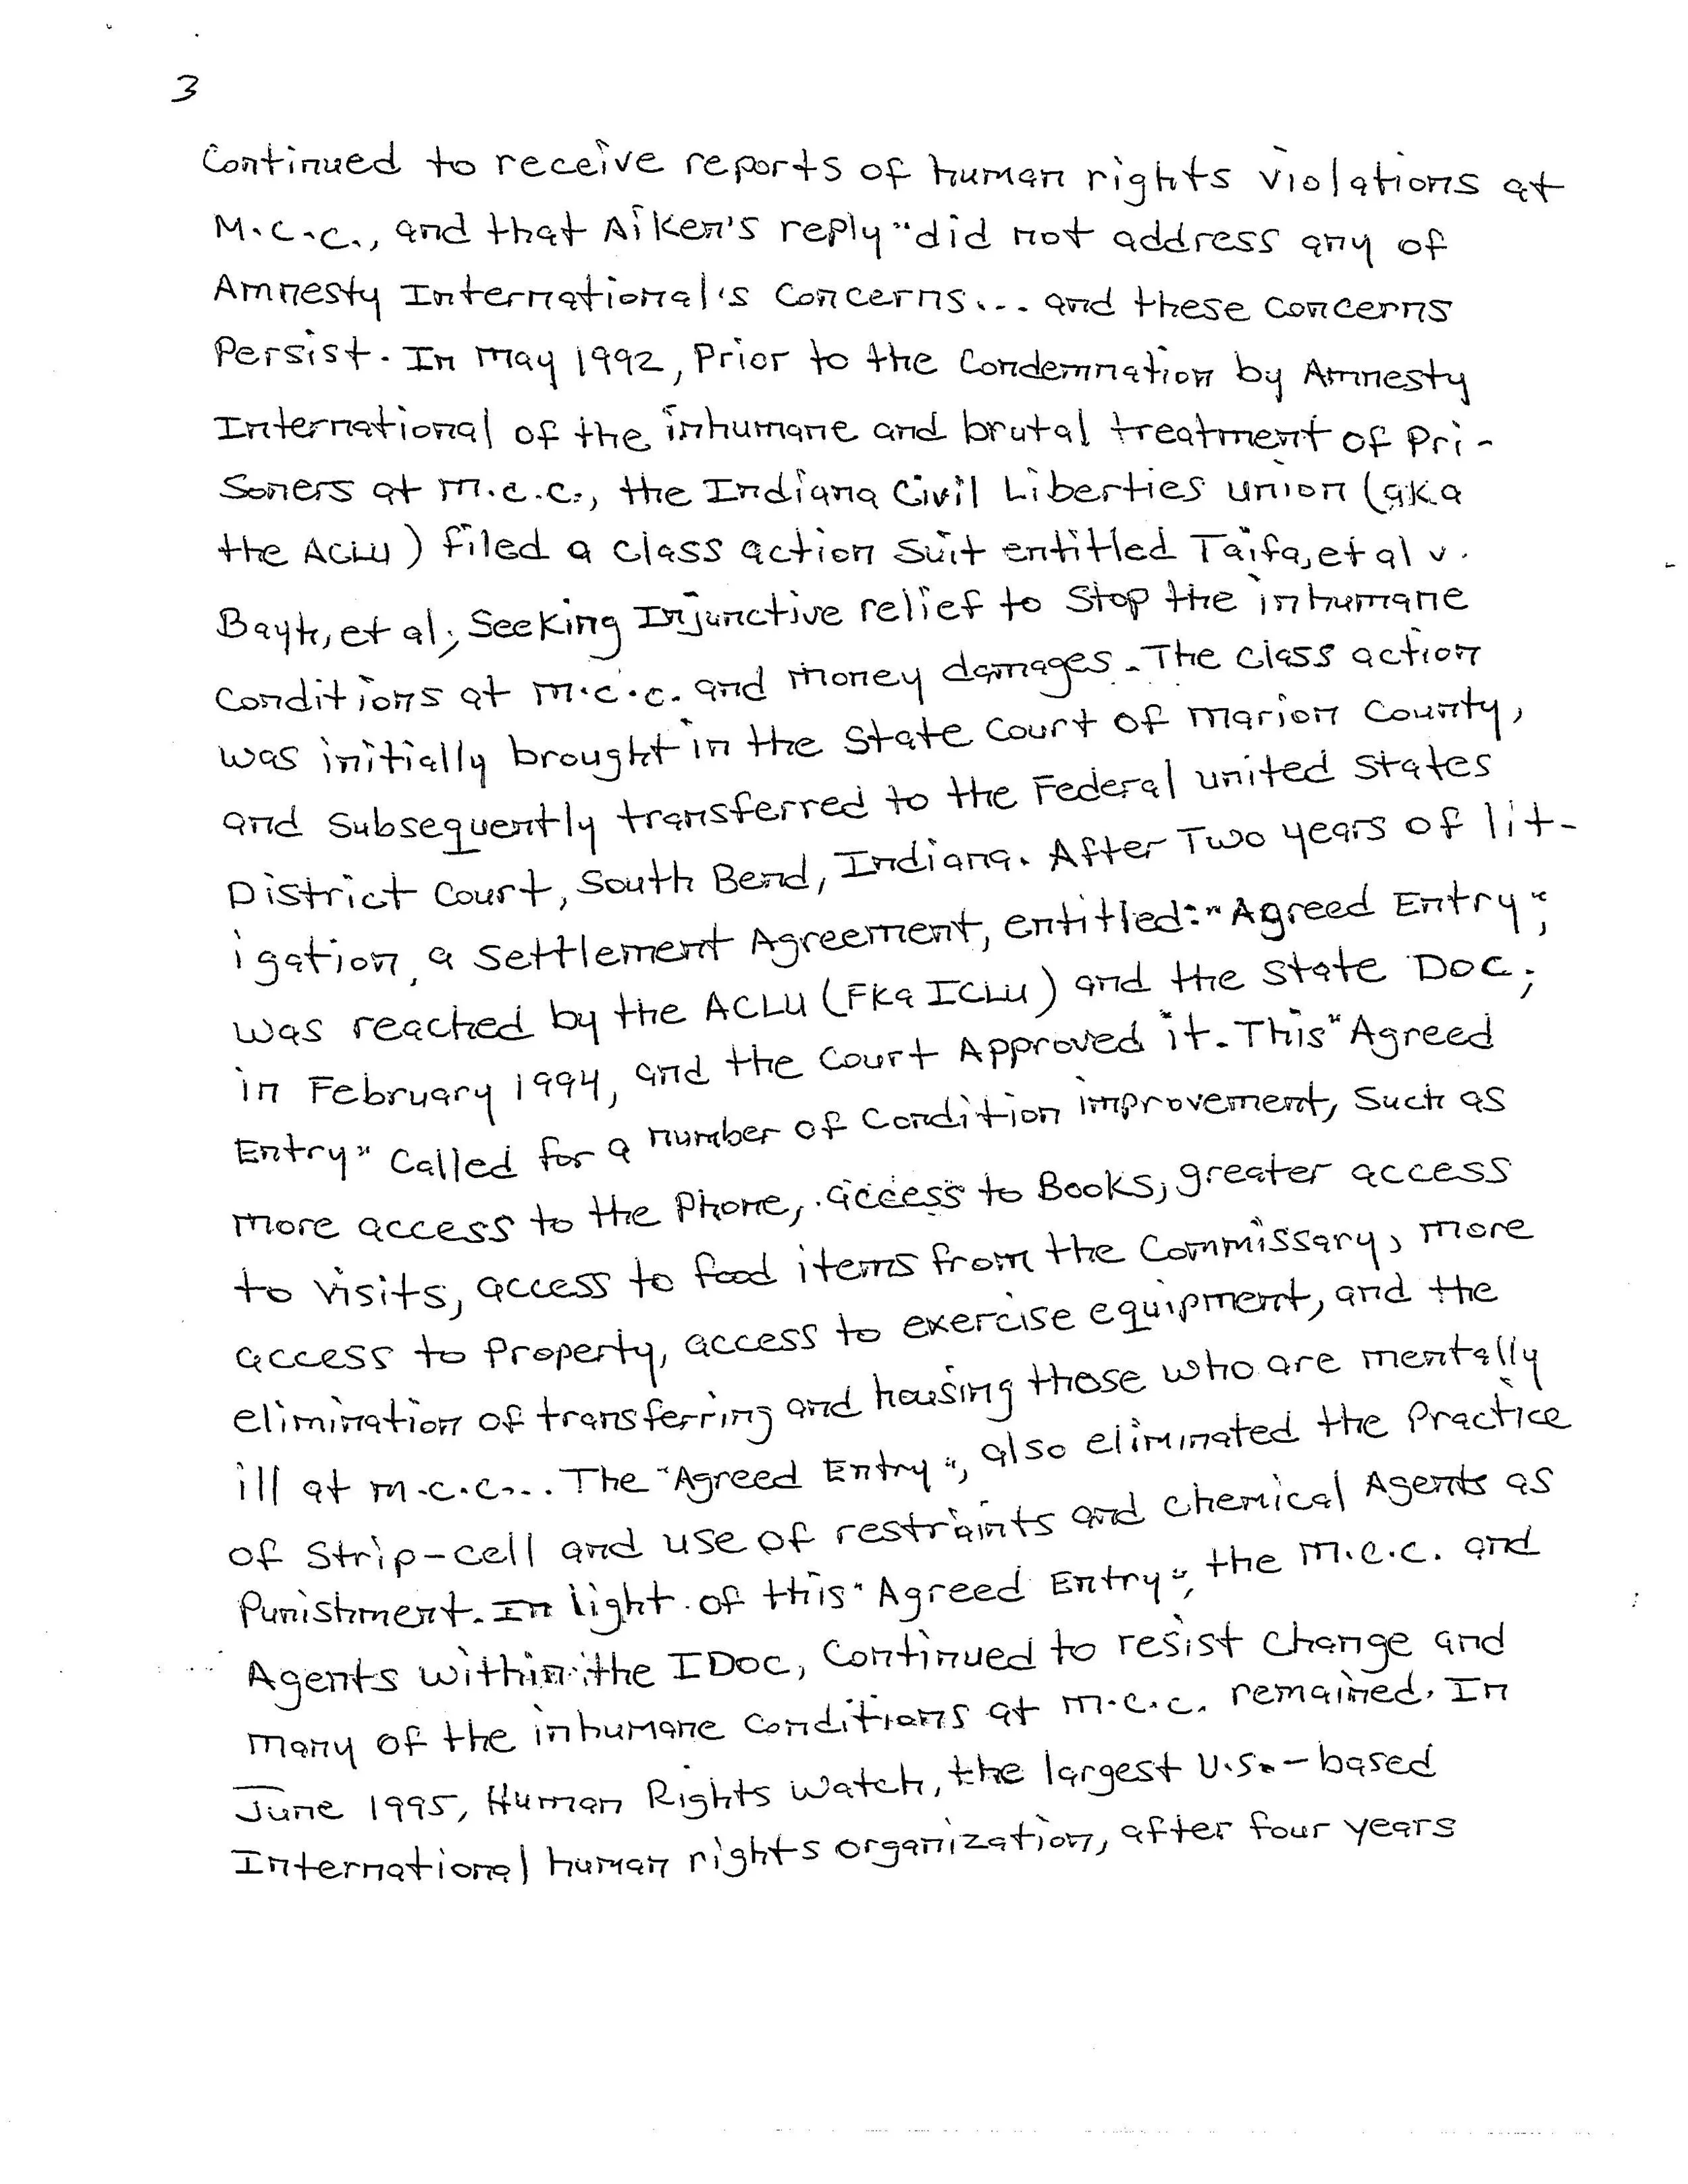 3
Continued to receive reports of human rights violations at
M.C.C., and that Aiken's reply "did not address any of
Amnesty International's Concerns... and these concerns
Persist. In May 1992, Prior to the Condemnation by Amnesty
International of the inhumane and brutal treatment of Pri-
Soners at M.C.C., the Indiana Civil Liberties Union (aka
the ACLU) filed a class action suit entitled Taifa, et al v.
Bayh, et al; Seeking Injunctive relief to Stop the inhumane
conditions at M.C.C. and money damages. The class action
was initially brought in the State Court of Marion County,
and Subsequently transferred to the Federal United States
District Court, South Bend, Indiana. After Two years of lit-
igation, a Settlement Agreement, entitled: "Agreed Entry";
was reached by the ACLU (FKa ICLU) and the State DOC;
in February 1994, and the Court Approved it. This "Agreed
Entry" Called for a number of Condition improvement, Such as
more access to the Phone, access to Books, greater access
to visits, access to food items from the Commissary, more
access to Property, access to exercise equipment, and the
elimination of transferring and housing those who are mentally
ill at M.C.C... The "Agreed Entry", also eliminated the Practice
of Strip-cell and use of restraints and chemical Agents as
Punishment. In light of this "Agreed Entry", the M.C.C. and
Agents within the IDOC, Continued to resist change and
many of the inhumane conditions at M.C.C. remained. In
June 1995, Human Rights Watch, the largest U.S.-based
International human rights organization, after four years